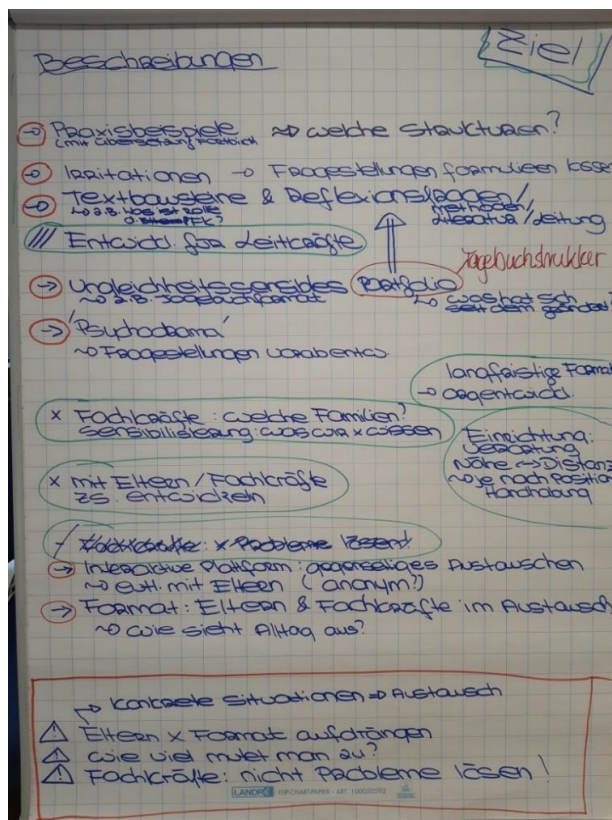 Beschreibungen
Ziel
→ Praxisbeispiele ~> welche Strukturen?
(mit Übersetzung
→ Irritationen → Fragestellungen formulieren
→ Textbausteine & Reflexionsfragen/
~> z.B. was ist Rolle
Methoden/
Literatur/Leitung
/// Entwickl. für Leitkräfte
→ Ungleichheitssensibles Portfolio
Tagebuchstruktur
~> z.B. Tagebuchformat
↳ was hat sich
seit dem geändert
→ 'Psychodrama'
~> Fragestellungen vorab entw.
langfristige Format
→ Orgentwickl.
x Fachkräfte: welche Familien?
Sensibilisierung: was wir x wissen
Einrichtung:
Verortung
Nähe → Distanz
~> je nach Position
Handhabung
x mit Eltern / Fachkräfte
zs. entwickeln
Fachkräfte: x Probleme lösen!
→ Interaktive Platform: gegenseitiges Austauschen
~> evtl. mit Eltern (anonym?)
→ Format: Eltern & Fachkräfte im Austausch
~> wie sieht Alltag aus?
→ konkrete Situationen => Austausch
⚠ Eltern x Format aufdrängen
⚠ wie viel mutet man zu?
⚠ Fachkräfte: nicht Probleme lösen!
LANDRÉ FLIPCHART-PAPER - ART. 100050592